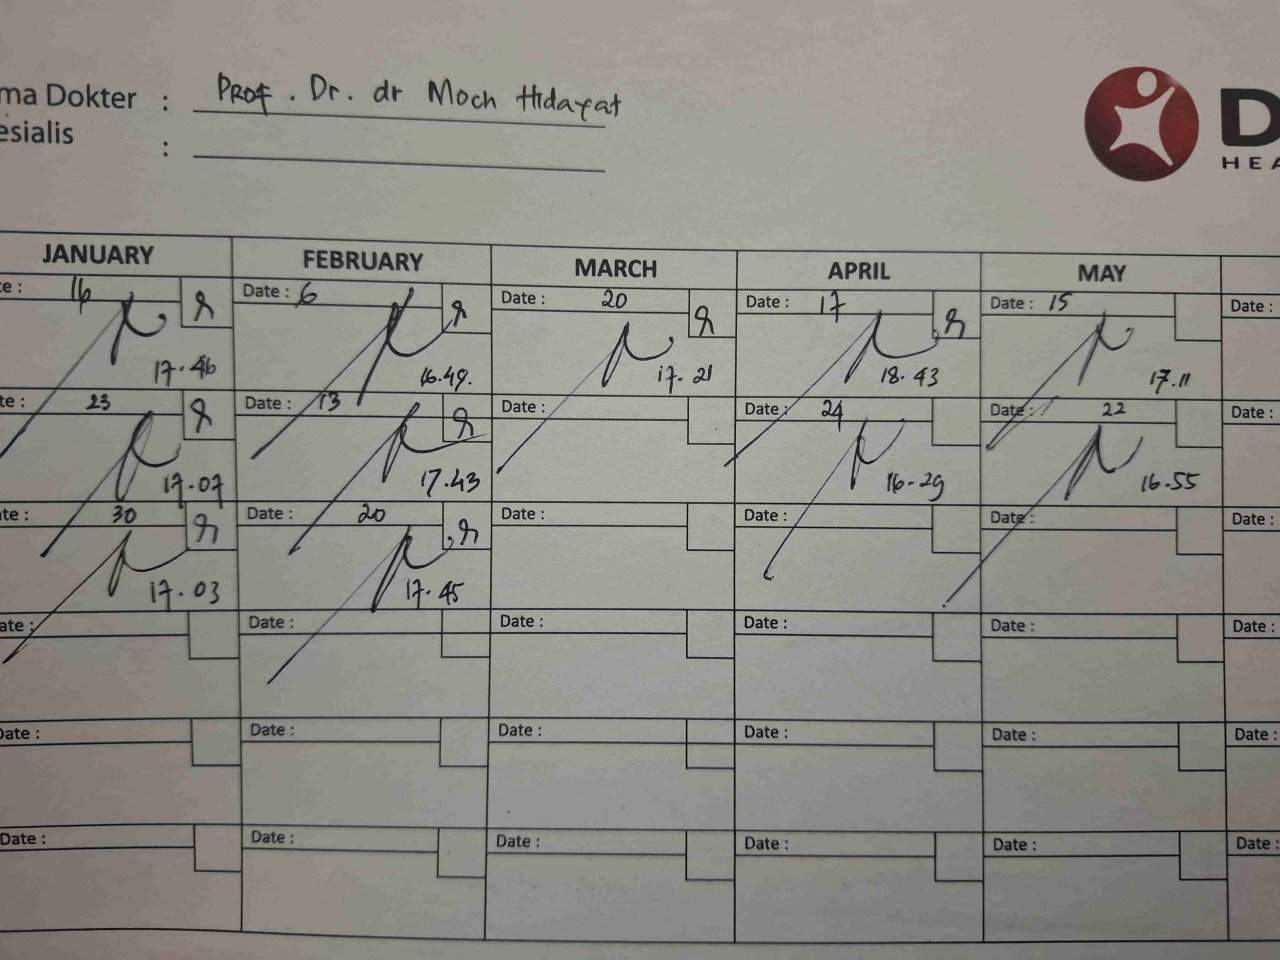 ma Dokter : Prof. Dr. dr Moch Hidayat
esialis :
D
HEA
JANUARY FEBRUARY MARCH APRIL MAY
te : 16 Date : 6 Date : 20 Date : 17 Date : 15 Date :
17.46 16.49. 17.21 18.43 17.11
te : 23 Date : 13 Date : Date : 24 Date : 22 Date :
17.07 17.43 16.29 16.55
ate : 30 Date : 20 Date : Date : Date : Date :
17.03 17.45
ate : Date : Date : Date : Date : Date :
Date : Date : Date : Date : Date : Date :
Date : Date : Date : Date : Date : Date :